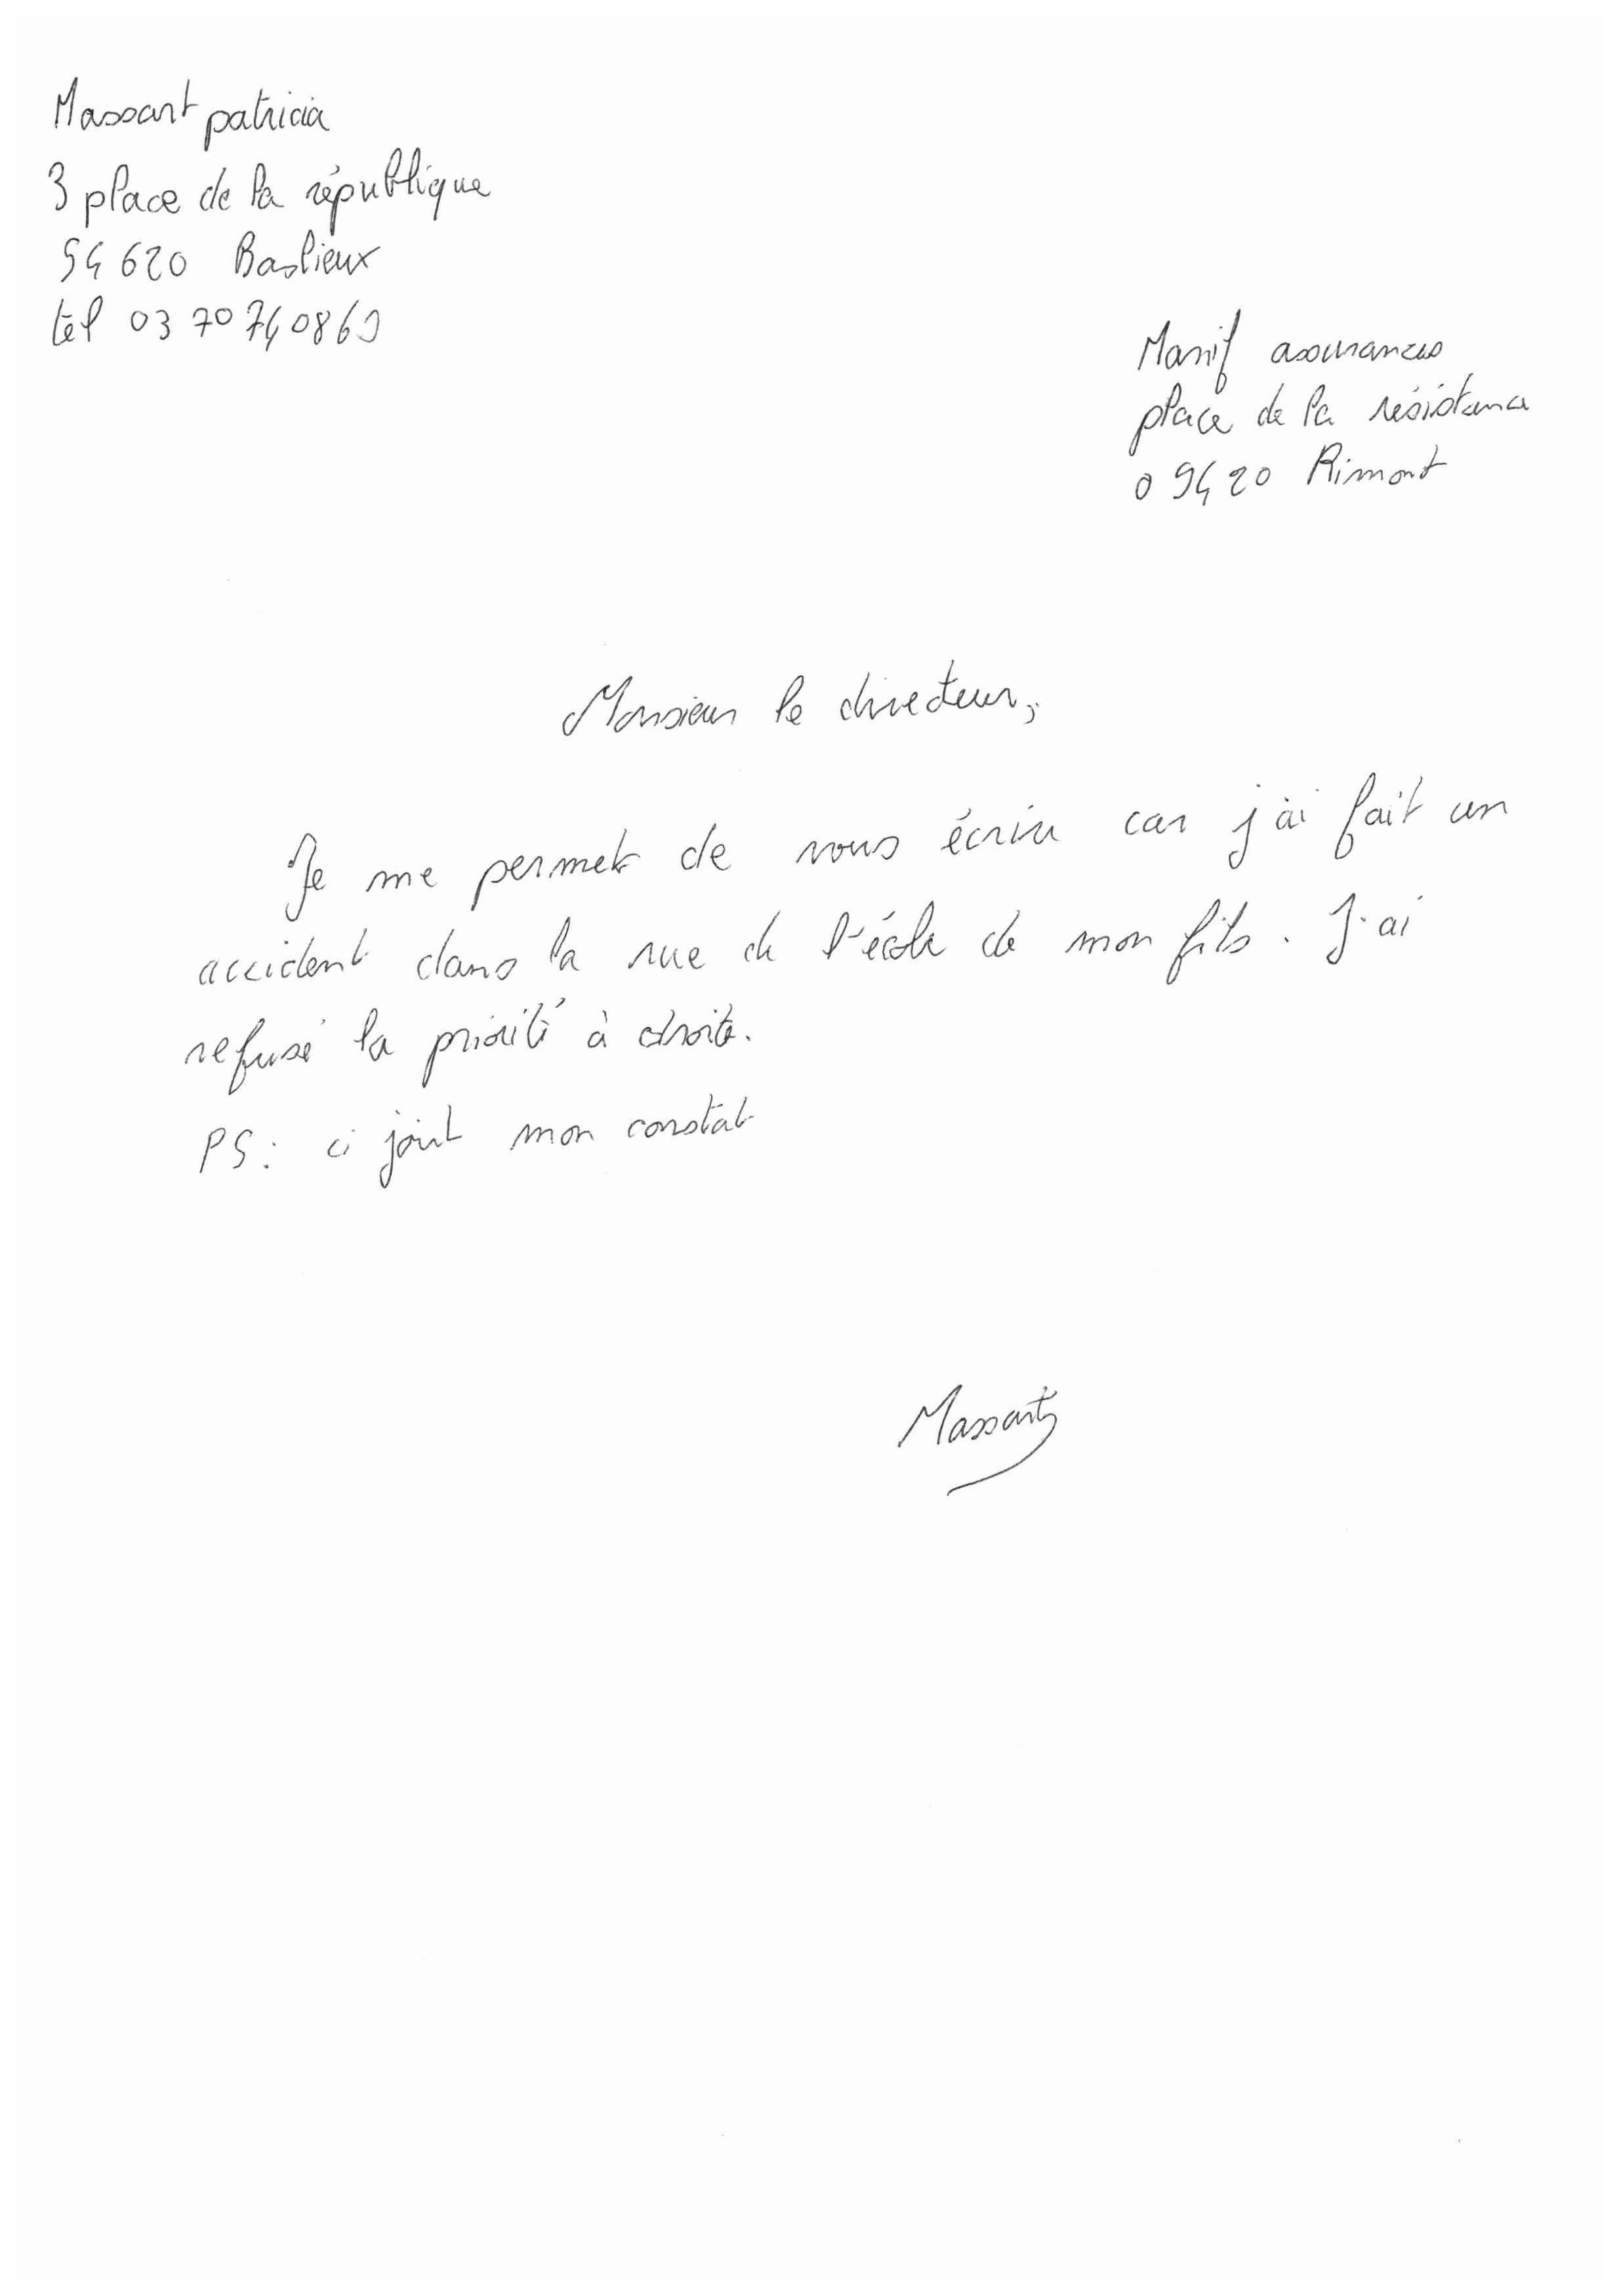 Massart patricia
3 place de la république
54620 Baslieux
tél 0370740869
Manif assurances
place de la résistance
09420 Rimont
Monsieur le directeur,
Je me permet de vous écrire car j'ai fait un
accident dans la rue de l'école de mon fils. J'ai
refusé la priorité à droite.
PS: ci joint mon constat
Massart